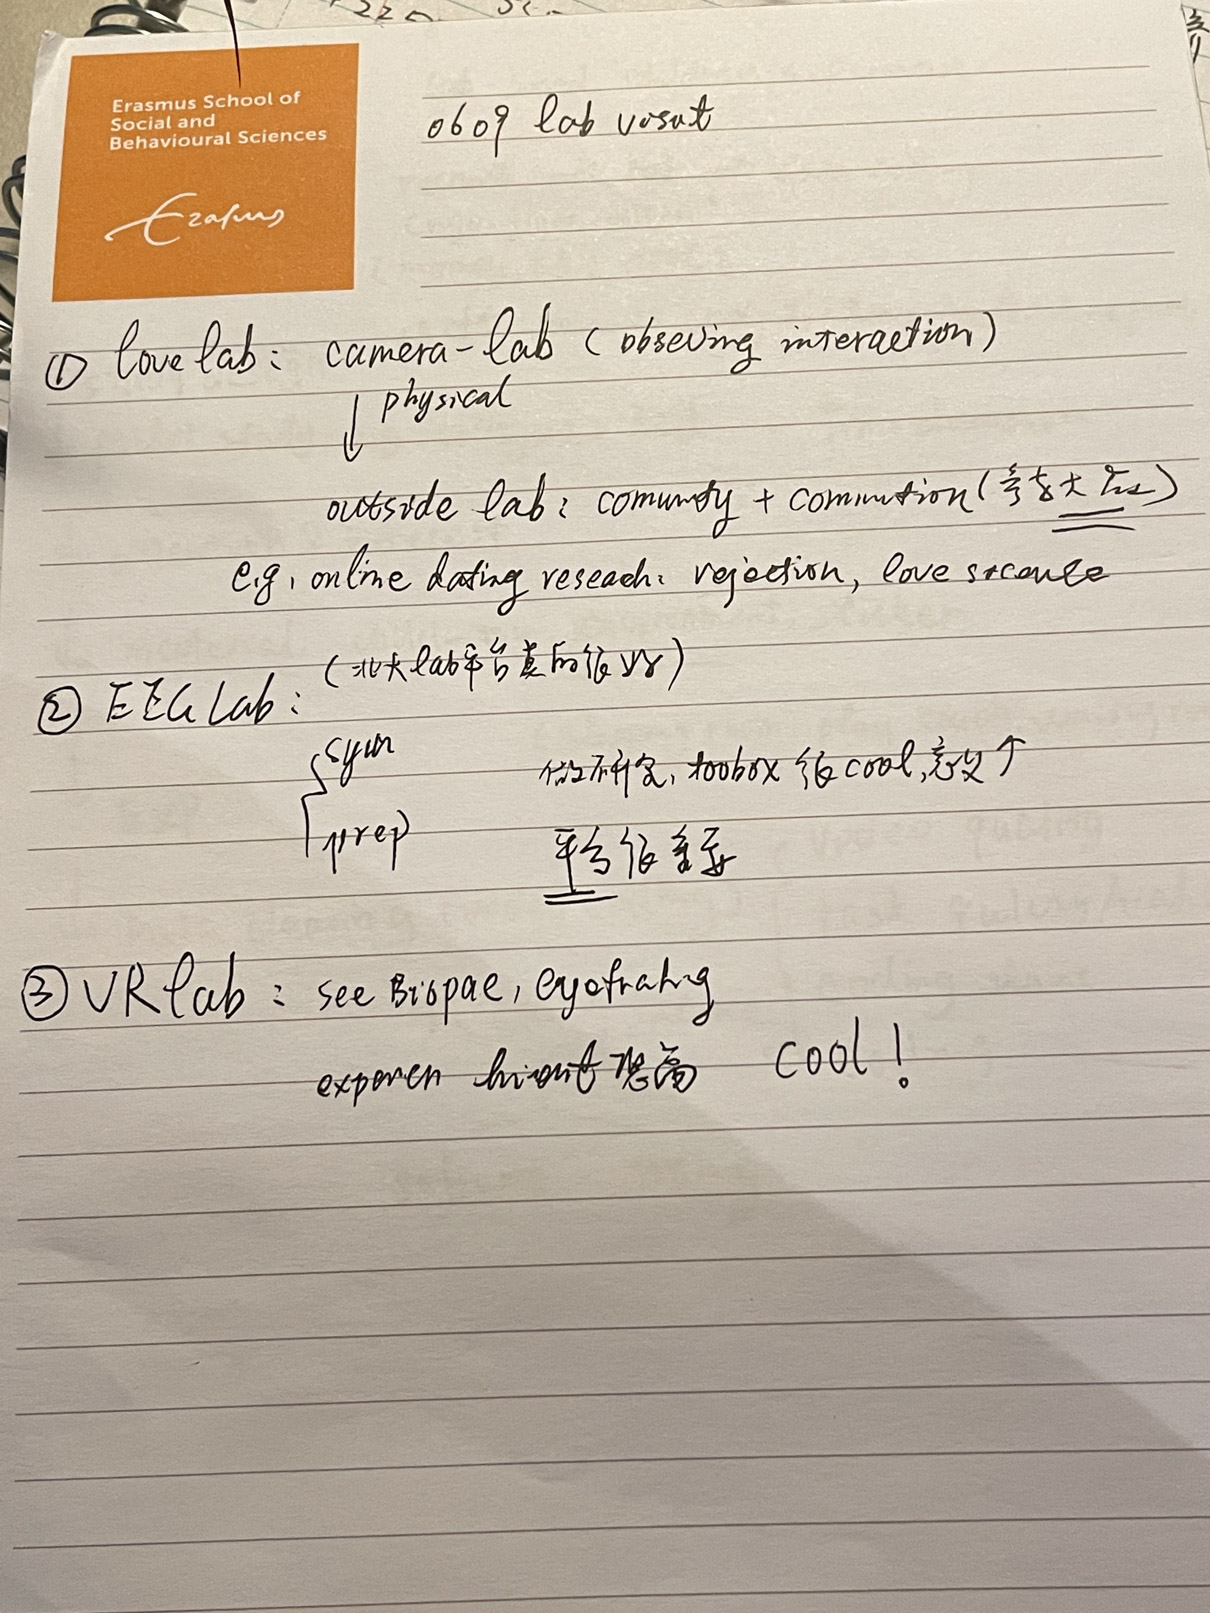 Erasmus School of
Social and
Behavioural Sciences
Erasmus
0609 lab vosut
① love lab: camera-lab (obseving interaction)
physical
outside lab: comunity + commution(
e.g. online dating reseach: rejection, love
(北大lab平台真的很好)
② EEG Lab:
syun
prep
做研究, toobox 很cool,意义↑
平台很重要
③ VR lab: see Biopac, eyetrahng
experien 恐高 cool!